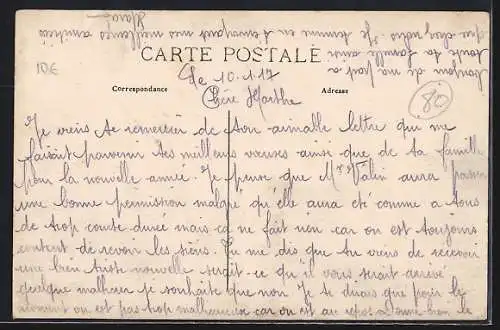 CARTE POSTALE
Correspondance
Adresse
10 €
80
Le 10-1-17
Chère Marthe
Je viens te remercier de ton aimable lettre qui me
faisait parvenir tes meilleurs voeuses ainsi que de ta famille
pour la nouvelle année. Je pense que Mr Valin aura passer
une bonne permission malgré qu'elle aura été comme a tous
de trop courte durée mais ça ne fait rien car on est toujours
content de revoir les siens. Tu me dis que tu viens de recevoir
une bien triste nouvelle serait-ce qu'il vous serait arrivé
quelque malheur je souhaite que non. Je te dirais que pour le
moment on est pas trop malheureuse car on est au repos
bonjour de ma part a
toute ta famille ainsi
que chez nous. Je termine en t'envoyant mes meilleures amitiées